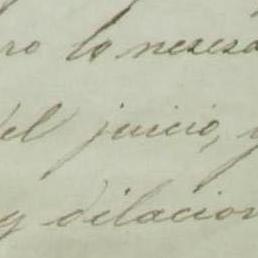 ro lo necesa
del juicio, y
y dilacion